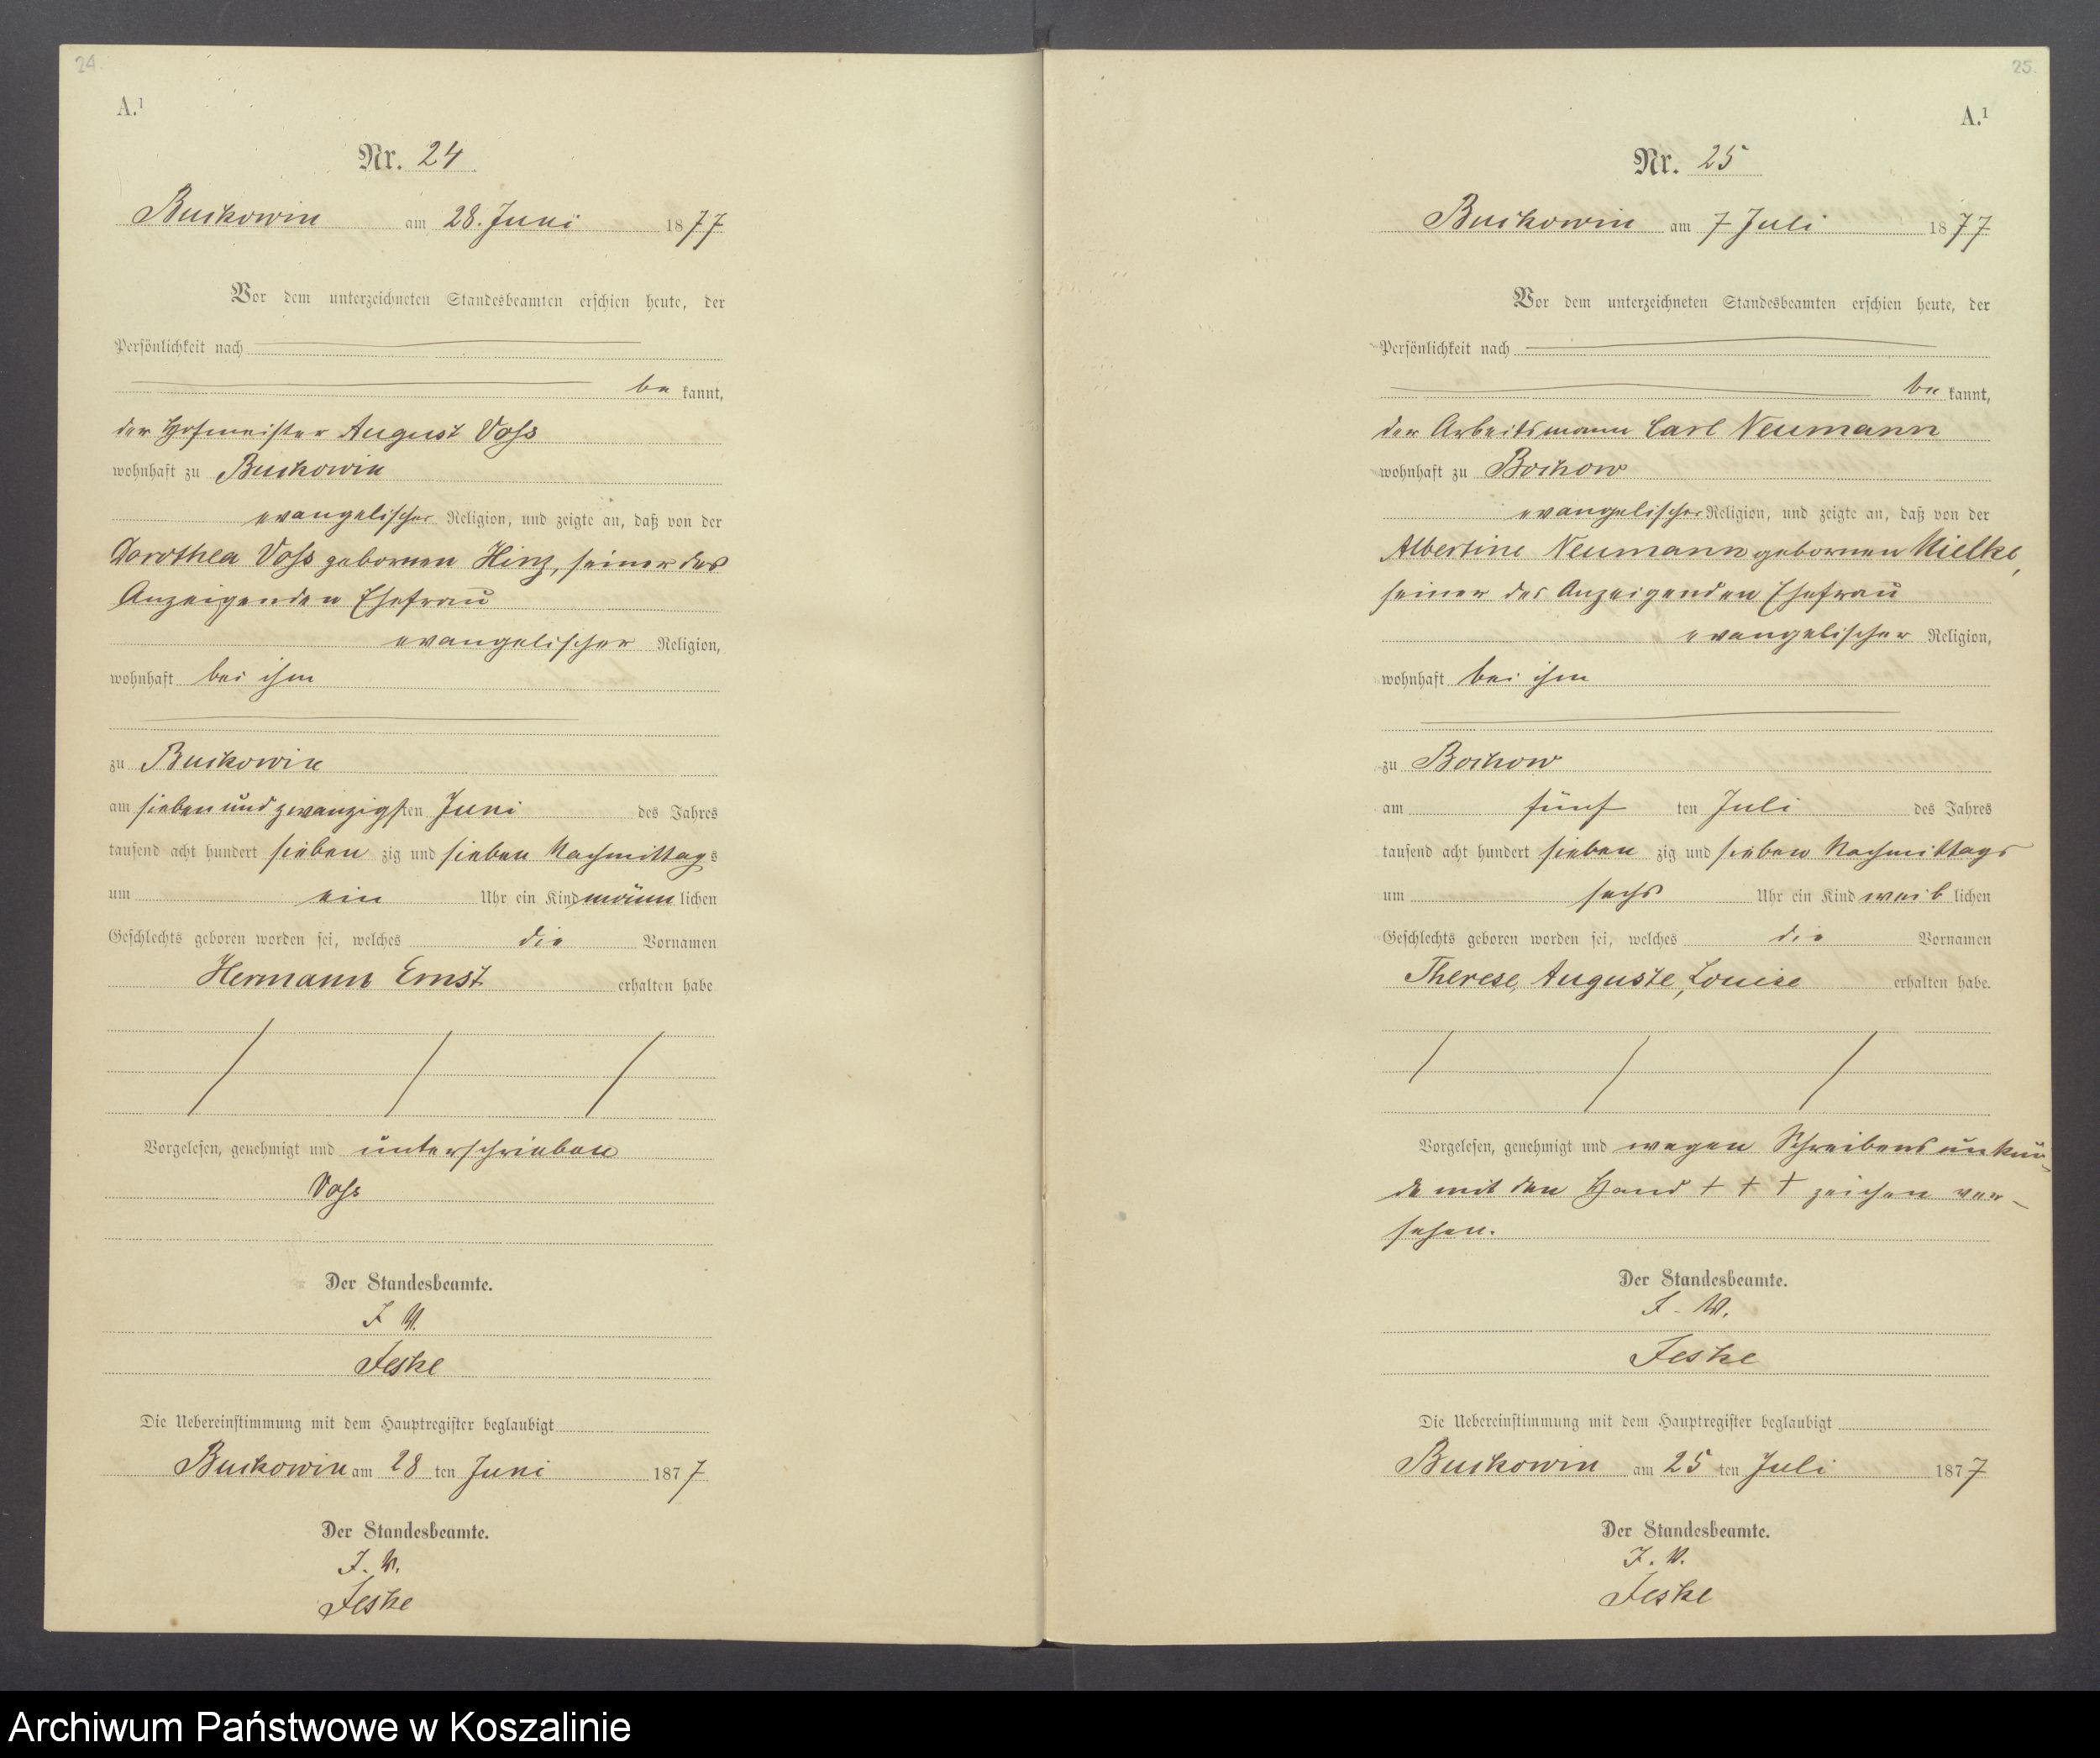 24.
A.¹
Nr. 24
Buckowin am 28. Juni 1877
Vor dem unterzeichneten Standesbeamten erschien heute, der
Persönlichkeit nach
be kannt,
der Hofmeister August Voß
wohnhaft zu Buckowin
evangelischer Religion, und zeigte an, daß von der
Dorothea Voß gebornen Hinz, seiner des
Anzeigenden Ehefrau
evangelischer Religion,
wohnhaft bei ihm
zu Buckowin
am sieben und zwanzigsten Juni des Jahres
tausend acht hundert sieben zig und sieben Nachmittags
um ein Uhr ein Kind männ lichen
Geschlechts geboren worden sei, welches die Vornamen
Hermann Ernst erhalten habe
Vorgelesen, genehmigt und unterschrieben
Voß
Der Standesbeamte.
I. V.
Jeske
Die Uebereinstimmung mit dem Hauptregister beglaubigt
Buckowin am 28 ten Juni 1877
Der Standesbeamte.
I. V.
Jeske
25.
A.¹
Nr. 25
Buckowin am 7 Juli 1877
Vor dem unterzeichneten Standesbeamten erschien heute, der
Persönlichkeit nach
be kannt,
der Arbeitsmann Carl Neumann
wohnhaft zu Bochow
evangelischer Religion, und zeigte an, daß von der
Albertine Neumann gebornen Mielke,
seiner des Anzeigenden Ehefrau
evangelischer Religion,
wohnhaft bei ihm
zu Bochow
am fünf ten Juli des Jahres
tausend acht hundert sieben zig und sieben Nachmittags
um sechs Uhr ein Kind weib lichen
Geschlechts geboren worden sei, welches die Vornamen
Therese, Auguste, Louise erhalten habe.
Vorgelesen, genehmigt und wegen Schreibensunkun-
de mit den Hand + + + zeichen ver-
sehen.
Der Standesbeamte.
I. V.
Jeske
Die Uebereinstimmung mit dem Hauptregister beglaubigt
Buckowin am 25 ten Juli 1877
Der Standesbeamte.
I. V.
Jeske
Archiwum Państwowe w Koszalinie